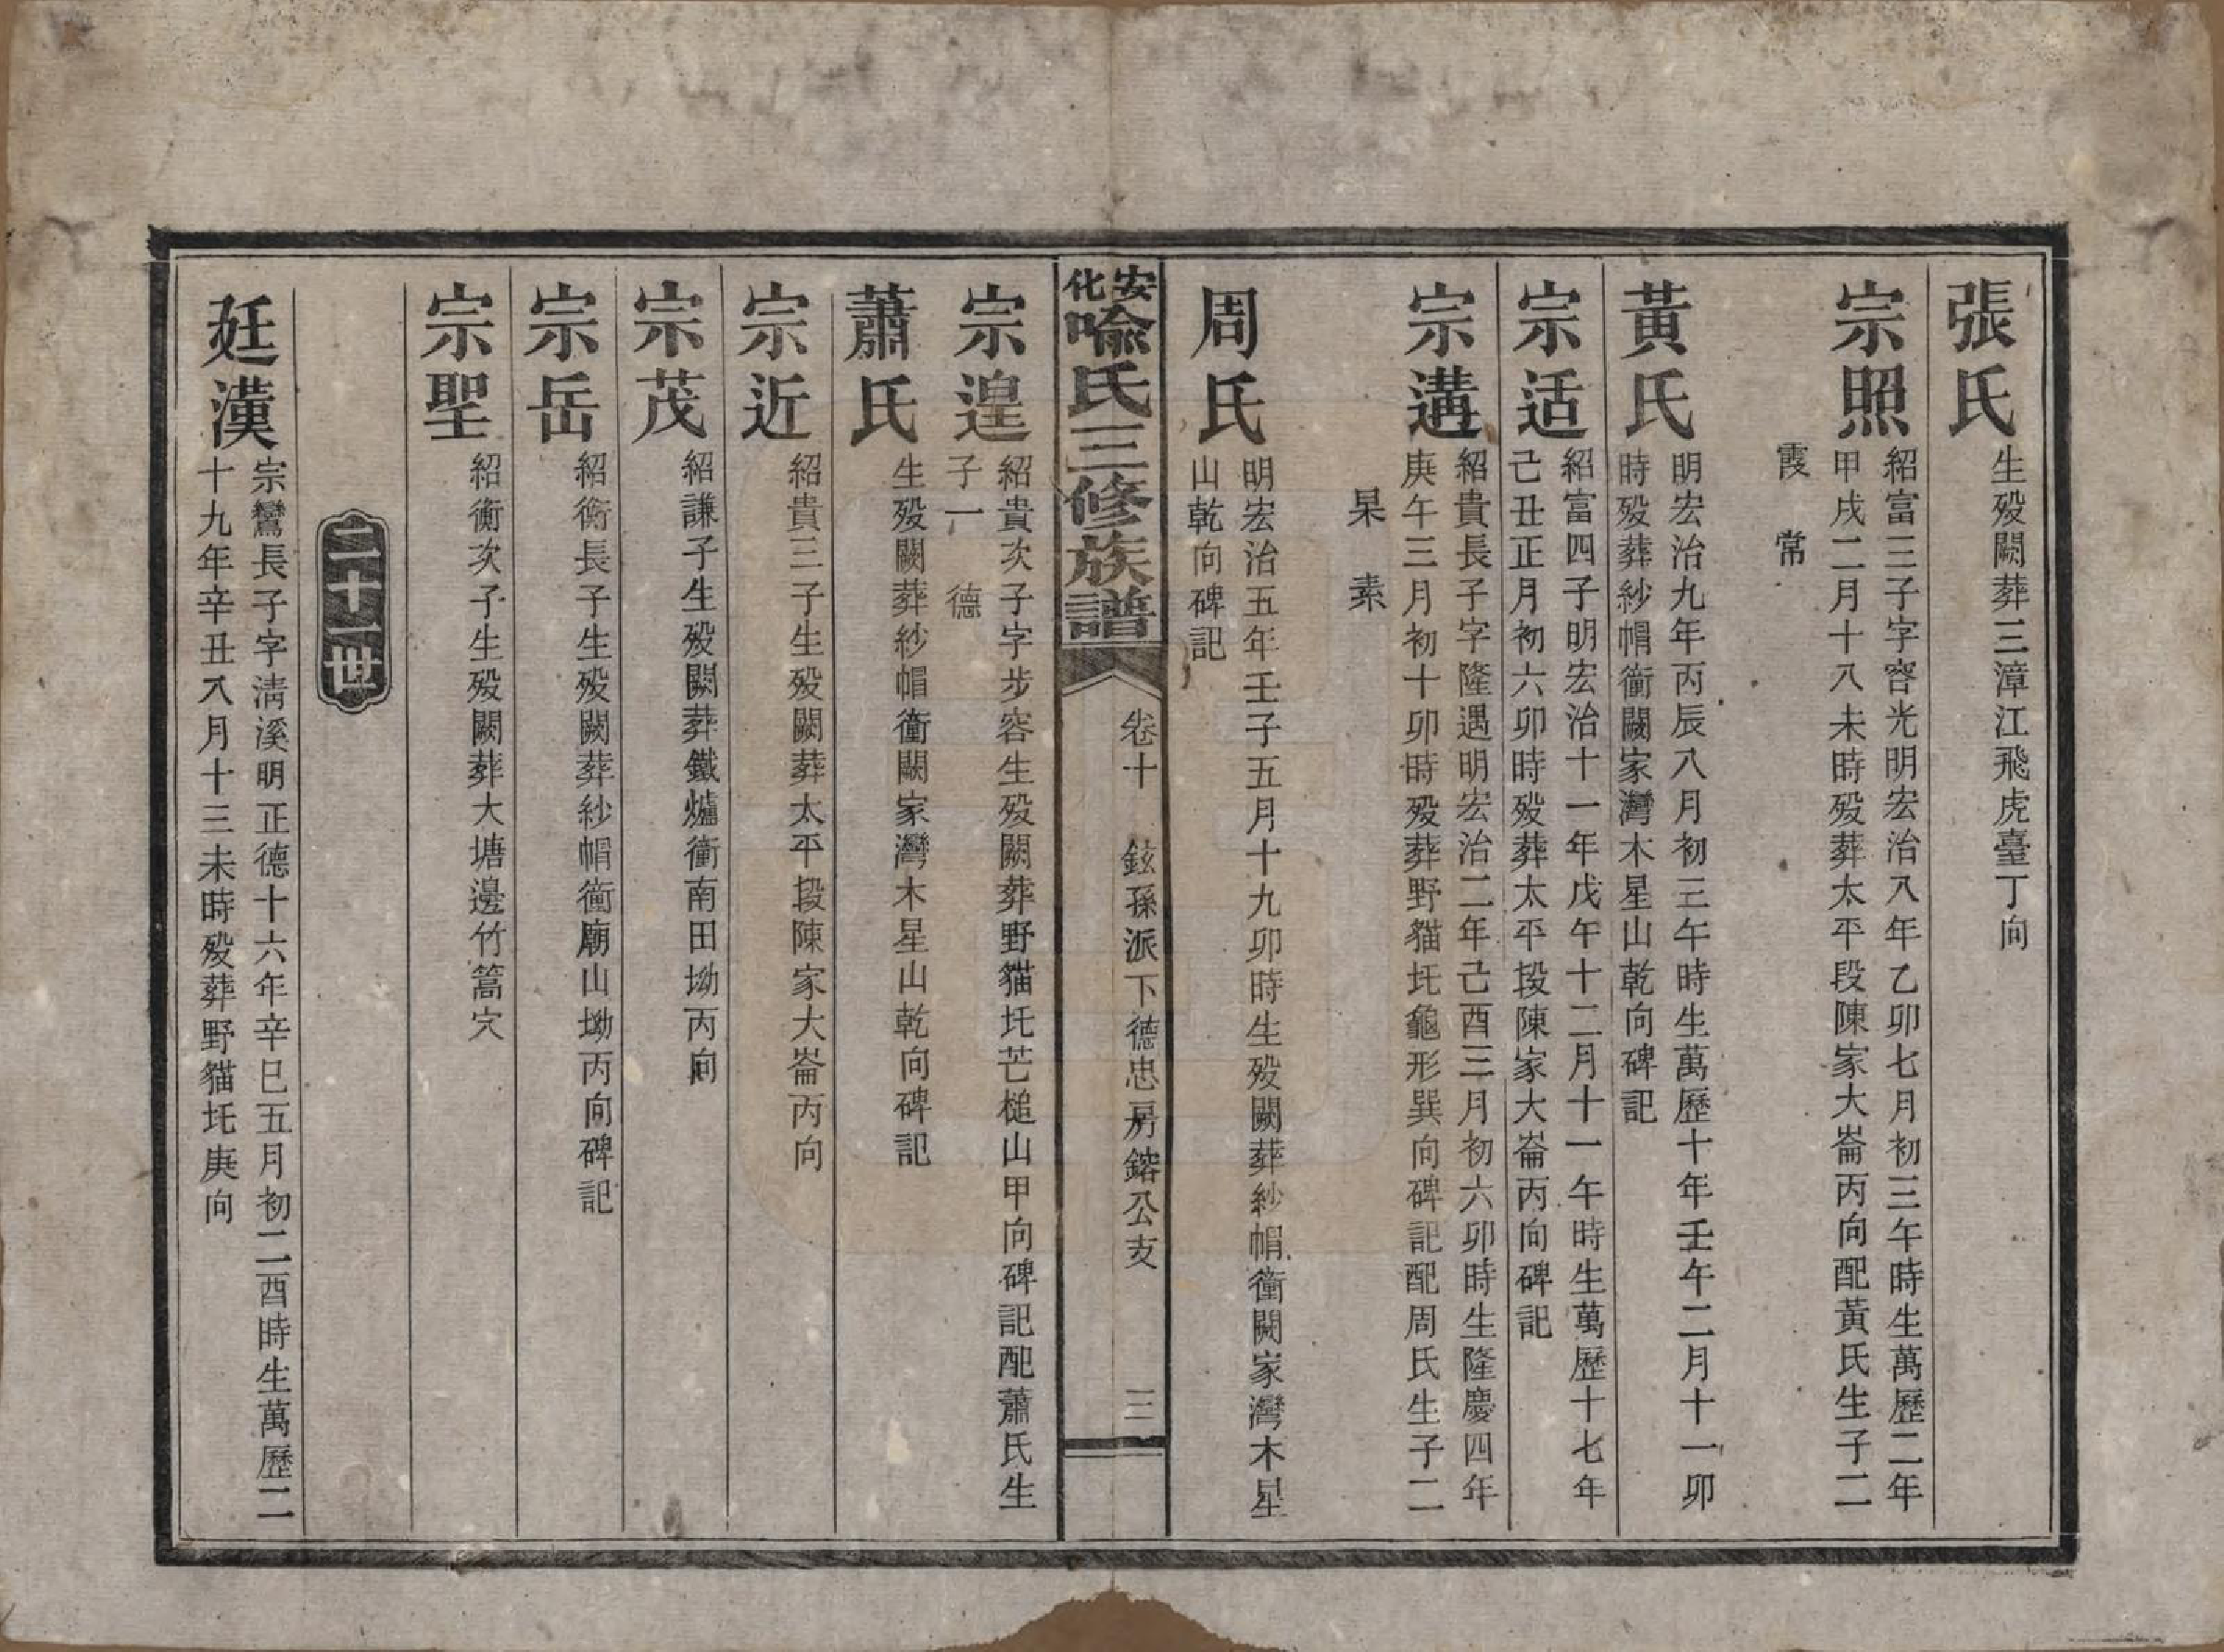 張氏
生殁闕葬三漳江飛虎臺丁向
宗照
紹富三子字容光明宏治八年乙卯七月初三午時生萬歷二年
甲戌二月十八未時殁葬太平段陳家大崙丙向配黃氏生子二
霞 常
黃氏
明宏治九年丙辰八月初三午時生萬歷十年壬午二月十一卯
時殁葬紗帽衝闕家灣木星山乾向碑記
宗适
紹富四子明宏治十一年戊午十二月十一午時生萬歷十七年
己丑正月初六卯時殁葬太平段陳家大崙丙向碑記
宗遘
紹貴長子字隆遇明宏治二年己酉三月初六卯時生隆慶四年
庚午三月初十卯時殁葬野貓圫龜形巽向碑記配周氏生子二
杲 素
周氏
明宏治五年壬子五月十九卯時生殁闕葬紗帽衝闕家灣木星
山乾向碑記
安化喻氏三修族譜
卷十 鉉孫派下德忠房鎔公支 三
宗遑
紹貴次子字步容生殁闕葬野貓圫芒槌山甲向碑記配蕭氏生
子一 德
蕭氏
生殁闕葬紗帽衝闕家灣木星山乾向碑記
宗近
紹貴三子生殁闕葬太平段陳家大崙丙向
宗茂
紹謙子生殁闕葬鐵爐衝南田坳丙向
宗岳
紹衡長子生殁闕葬紗帽衝廟山坳丙向碑記
宗聖
紹衡次子生殁闕葬大塘邊竹篙穴
二十一世
廷漢
宗鸞長子字清溪明正德十六年辛巳五月初二酉時生萬歷二
十九年辛丑八月十三未時殁葬野貓圫庚向